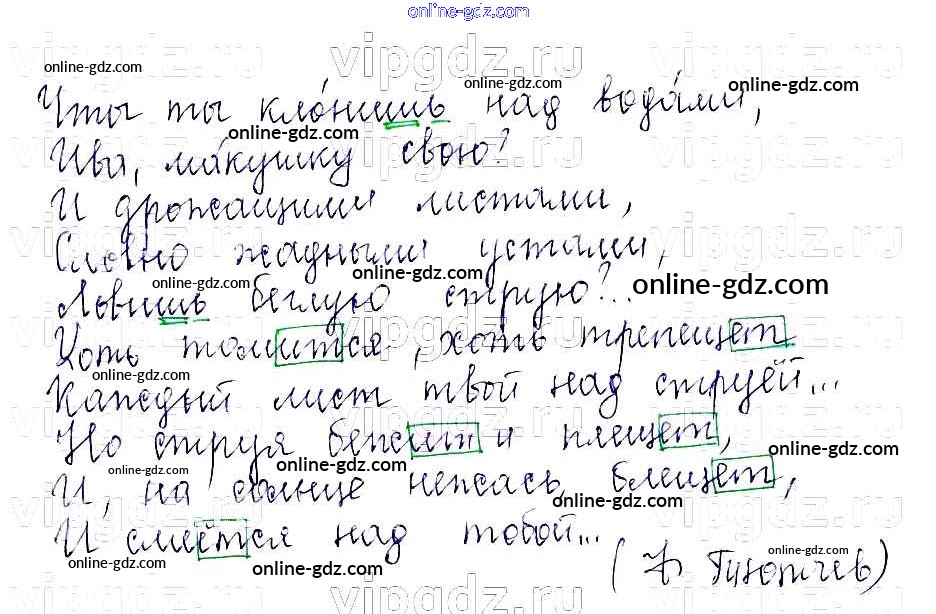 online-gdz.com
vipgdz.ru vipgdz.ru vipgdz.ru
online-gdz.com online-gdz.com online-gdz.com
Что ты кло́нишь над вода́ми,
online-gdz.com
Ива, ма́кушку свою?
И дрожащими листами,
Словно жадными устами,
online-gdz.com online-gdz.com online-gdz.com
Ловишь беглую струю?..
Хоть томится, хоть трепещет
online-gdz.com
Каждый лист твой над струёй...
Но струя бежит и плещет,
online-gdz.com online-gdz.com
И, на солнце нежась, блещет,
online-gdz.com
И смеётся над тобой...
(Ф Тютчев)
online-gdz.com online-gdz.com online-gdz.com